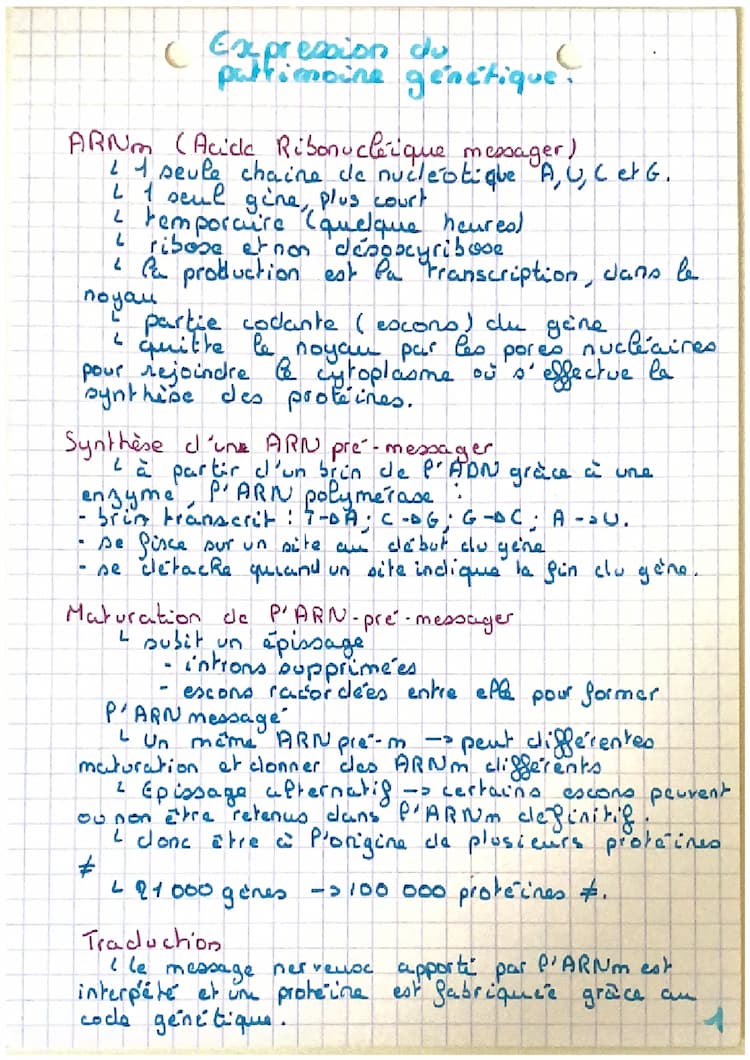 Expression du
patrimoine génétique.
ARNm (Acide Ribonucléique messager)
↳ 1 seule chaine de nucléotique A, U, C et G.
↳ 1 seul gène, plus court
↳ temporaire (quelque heures)
↳ ribose et non désoxyribose
↳ la production est la transcription, dans le
noyau
↳ partie codante (exons) du gène
↳ quitte le noyau par les pores nucléaires
pour rejoindre le cytoplasme où s'effectue la
synthèse des protéines.
Synthèse d'une ARN pré-messager
↳ à partir d'un brin de l'ADN grâce à une
enzyme, l'ARN polymérase :
- brin transcrit : T->A ; C->G ; G->C ; A->U.
- se fixe sur un site au début du gène
- se détache quand un site indique la fin du gène.
Maturation de l'ARN-pré-messager
↳ subit un épissage
- introns supprimées
- exons racordées entre elle pour former
l'ARN messagé
↳ Un même ARN pré-m -> peut différentes
maturation et donner des ARNm différents
↳ Epissage alternatif -> certains exons peuvent
ou non être retenus dans l'ARNm definitif.
↳ donc être à l'origine de plusieurs protéines
≠
↳ 21 000 gènes -> 100 000 protéines ≠.
Traduction
↳ le message nerveux apporté par l'ARNm est
interpété et une protéine est fabriquée grâce au
code génétique.
1